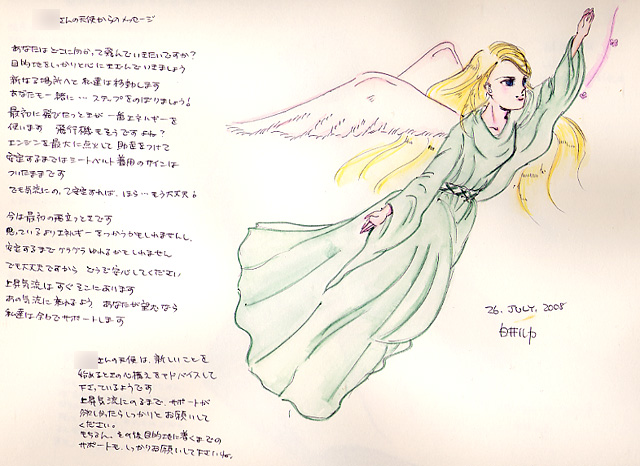 さんの天使からのメッセージ
あなたはどこに向かって飛んでいきたいですか？
目的地をしっかりと心にきざんでいきましょう
新たなる場所へと私達は移動します
あなたも一緒に… ステップをのぼりましょう！
最初に飛びたつときが一番エネルギーを
使います 飛行機もそうですよね？
エンジンを最大に点火して 助走をつけて
安定するまではシートベルト着用のサインは
ついたままです
でも気流にのって安定すれば、ほら…もう大丈夫！
今は最初の飛立つときです
思っているよりエネルギーをつかうかもしれませんし、
安定するまでグラグラゆれるかもしれません
でも大丈夫ですから どうぞ安心してください
上昇気流はすぐそこにあります
あの気流に乗れるよう あなたが望むなら
私達は全力でサポートします
さんの天使は、新しいことを
始めるときの心構えをアドバイスして
下さっているようです
上昇気流にのるまで、サポートが
欲しかったらしっかりとお願いして
ください。
もちろん、その後目的地に着くまでの
サポートも、しっかりお願いして下さいね。
26. JULY, 2008
白井ルカ